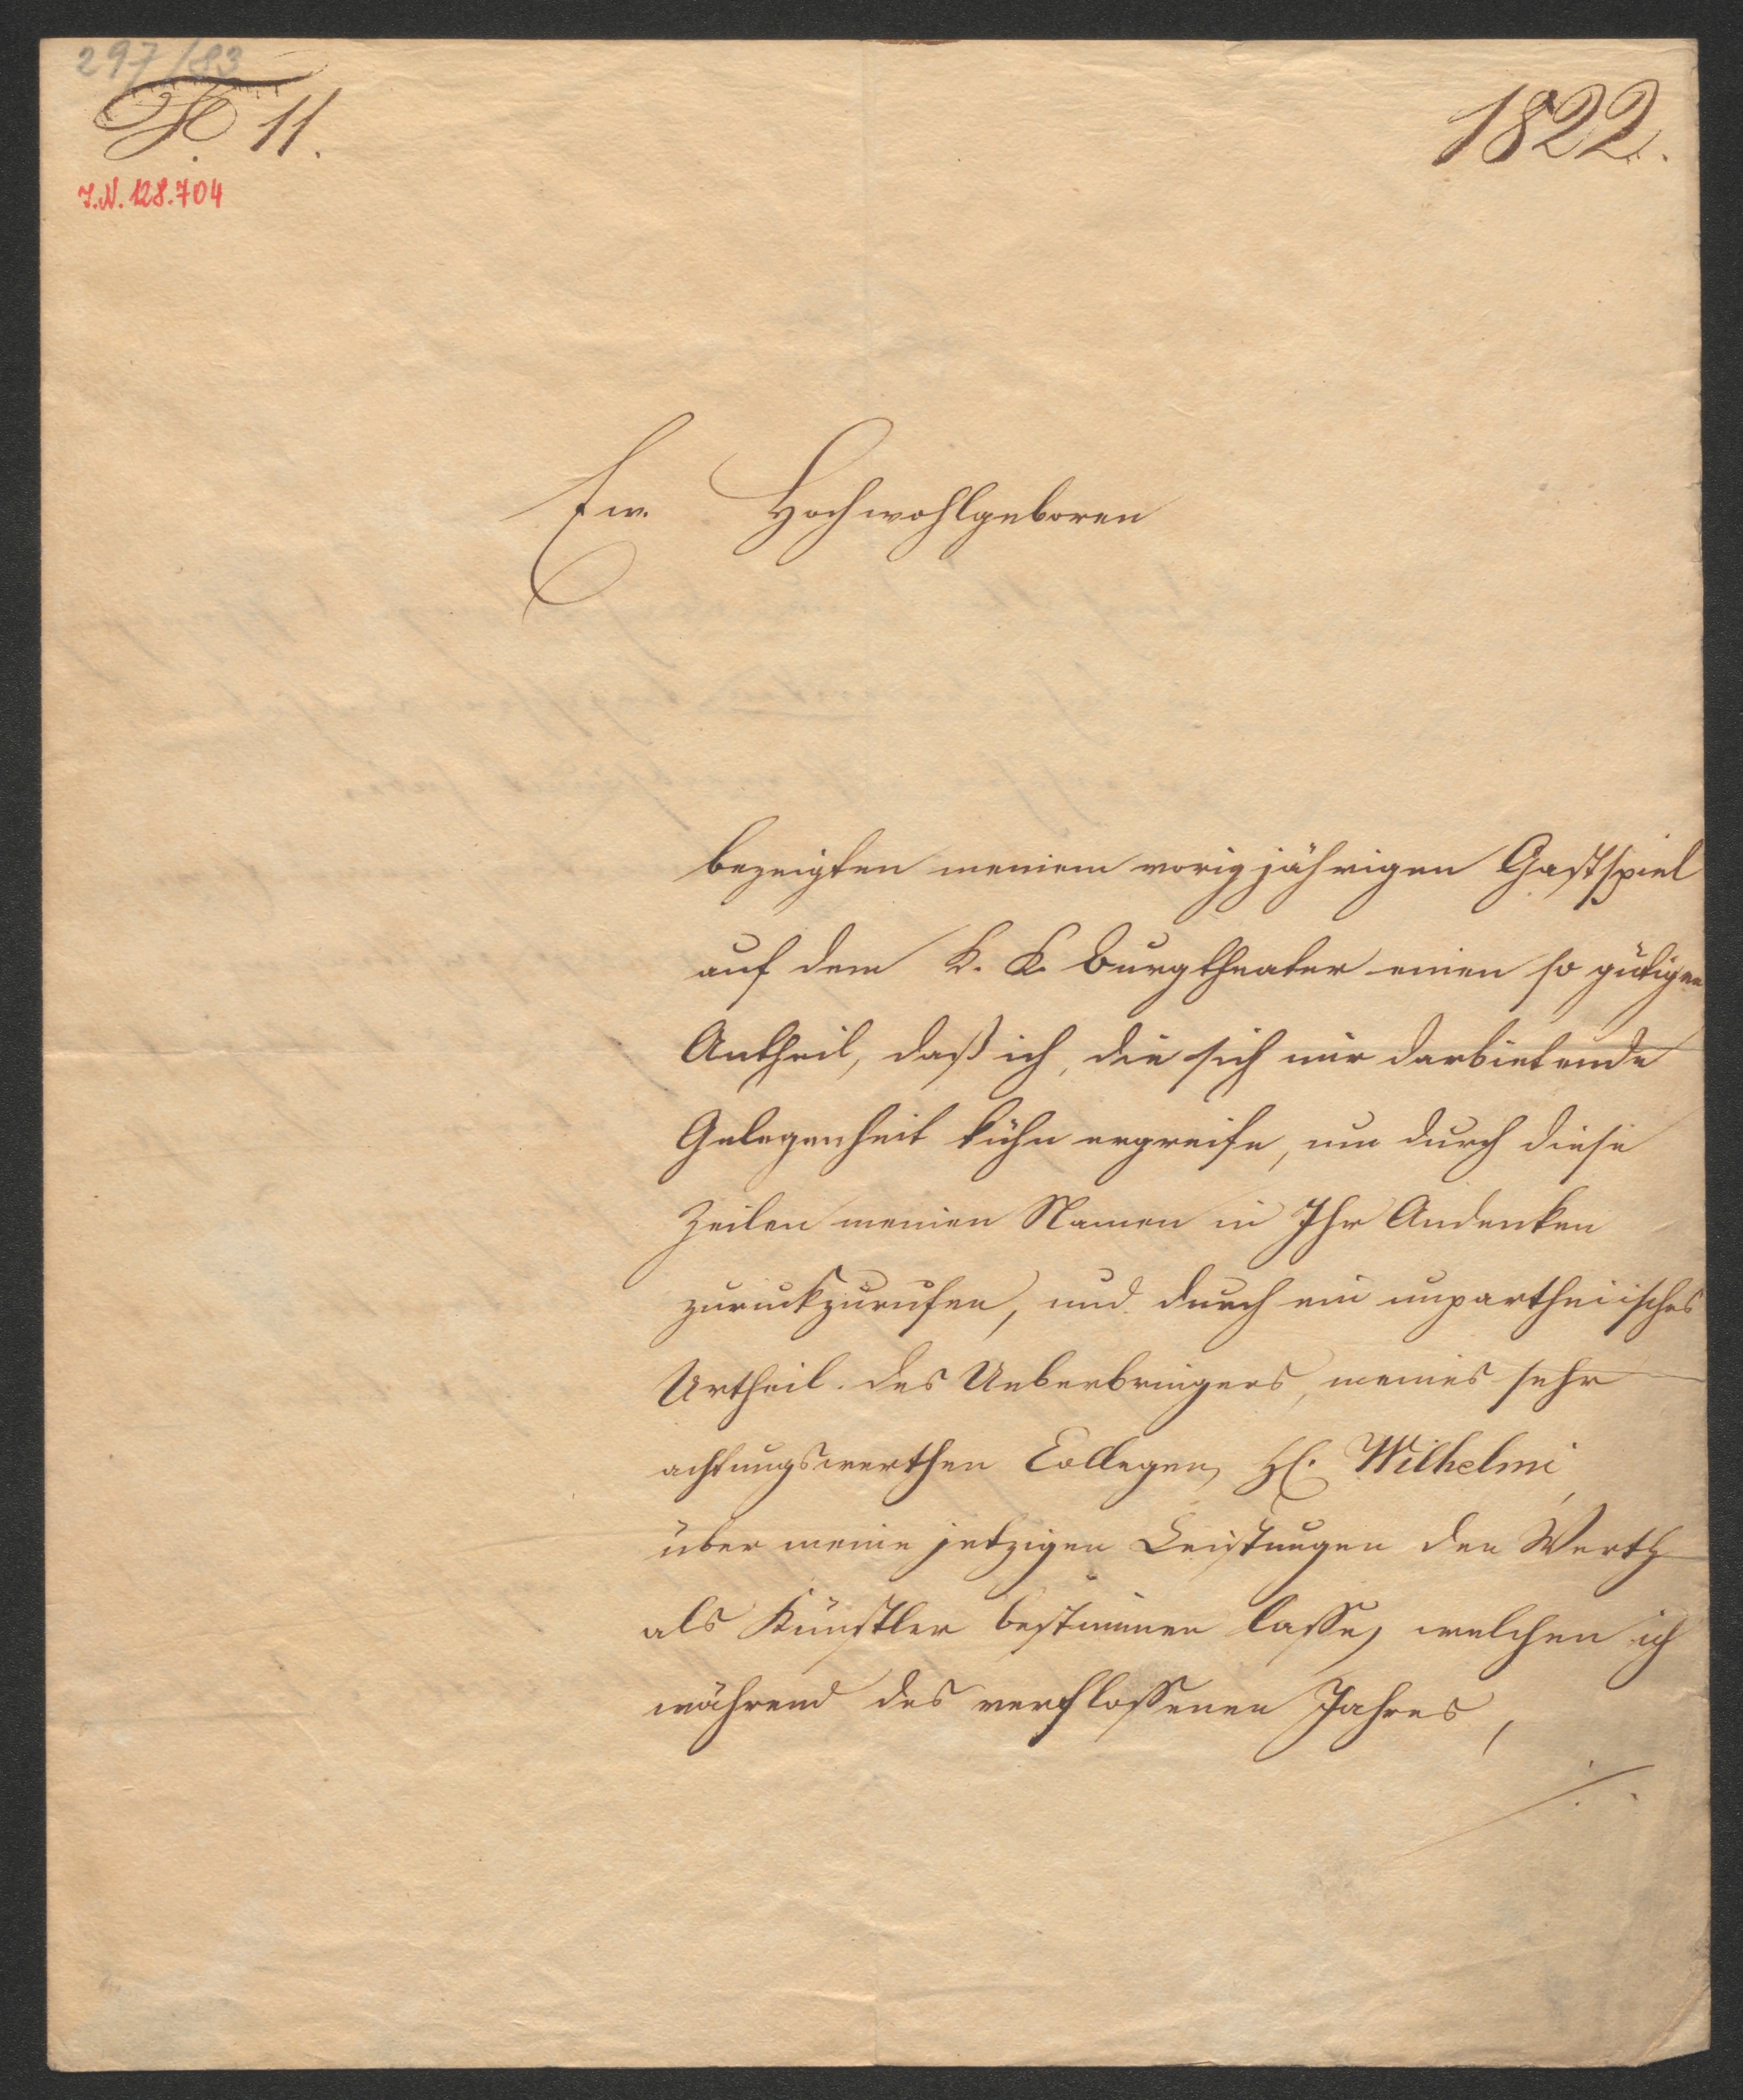 297/83
F. 11.
1822.
I.N. 128.704
Ew. Hochwohlgeboren
bezeigten meinem vorigjährigen Gastspiel
auf dem K. K. Burgtheater einen so gütigen
Antheil, daß ich, die sich mir darbietende
Gelegenheit kühn ergreife, um durch diese
Zeilen meinen Namen in Ihr Andenken
zurückzurufen, und durch ein unpartheiisches
Urtheil des Ueberbringers, meines sehr
achtungswerthen Collegen, H. Wilhelmi,
über meine jetzigen Leistungen den Werth
als Künstler bestimmen lasse, welchen ich
während des verflossenen Jahres,
./.